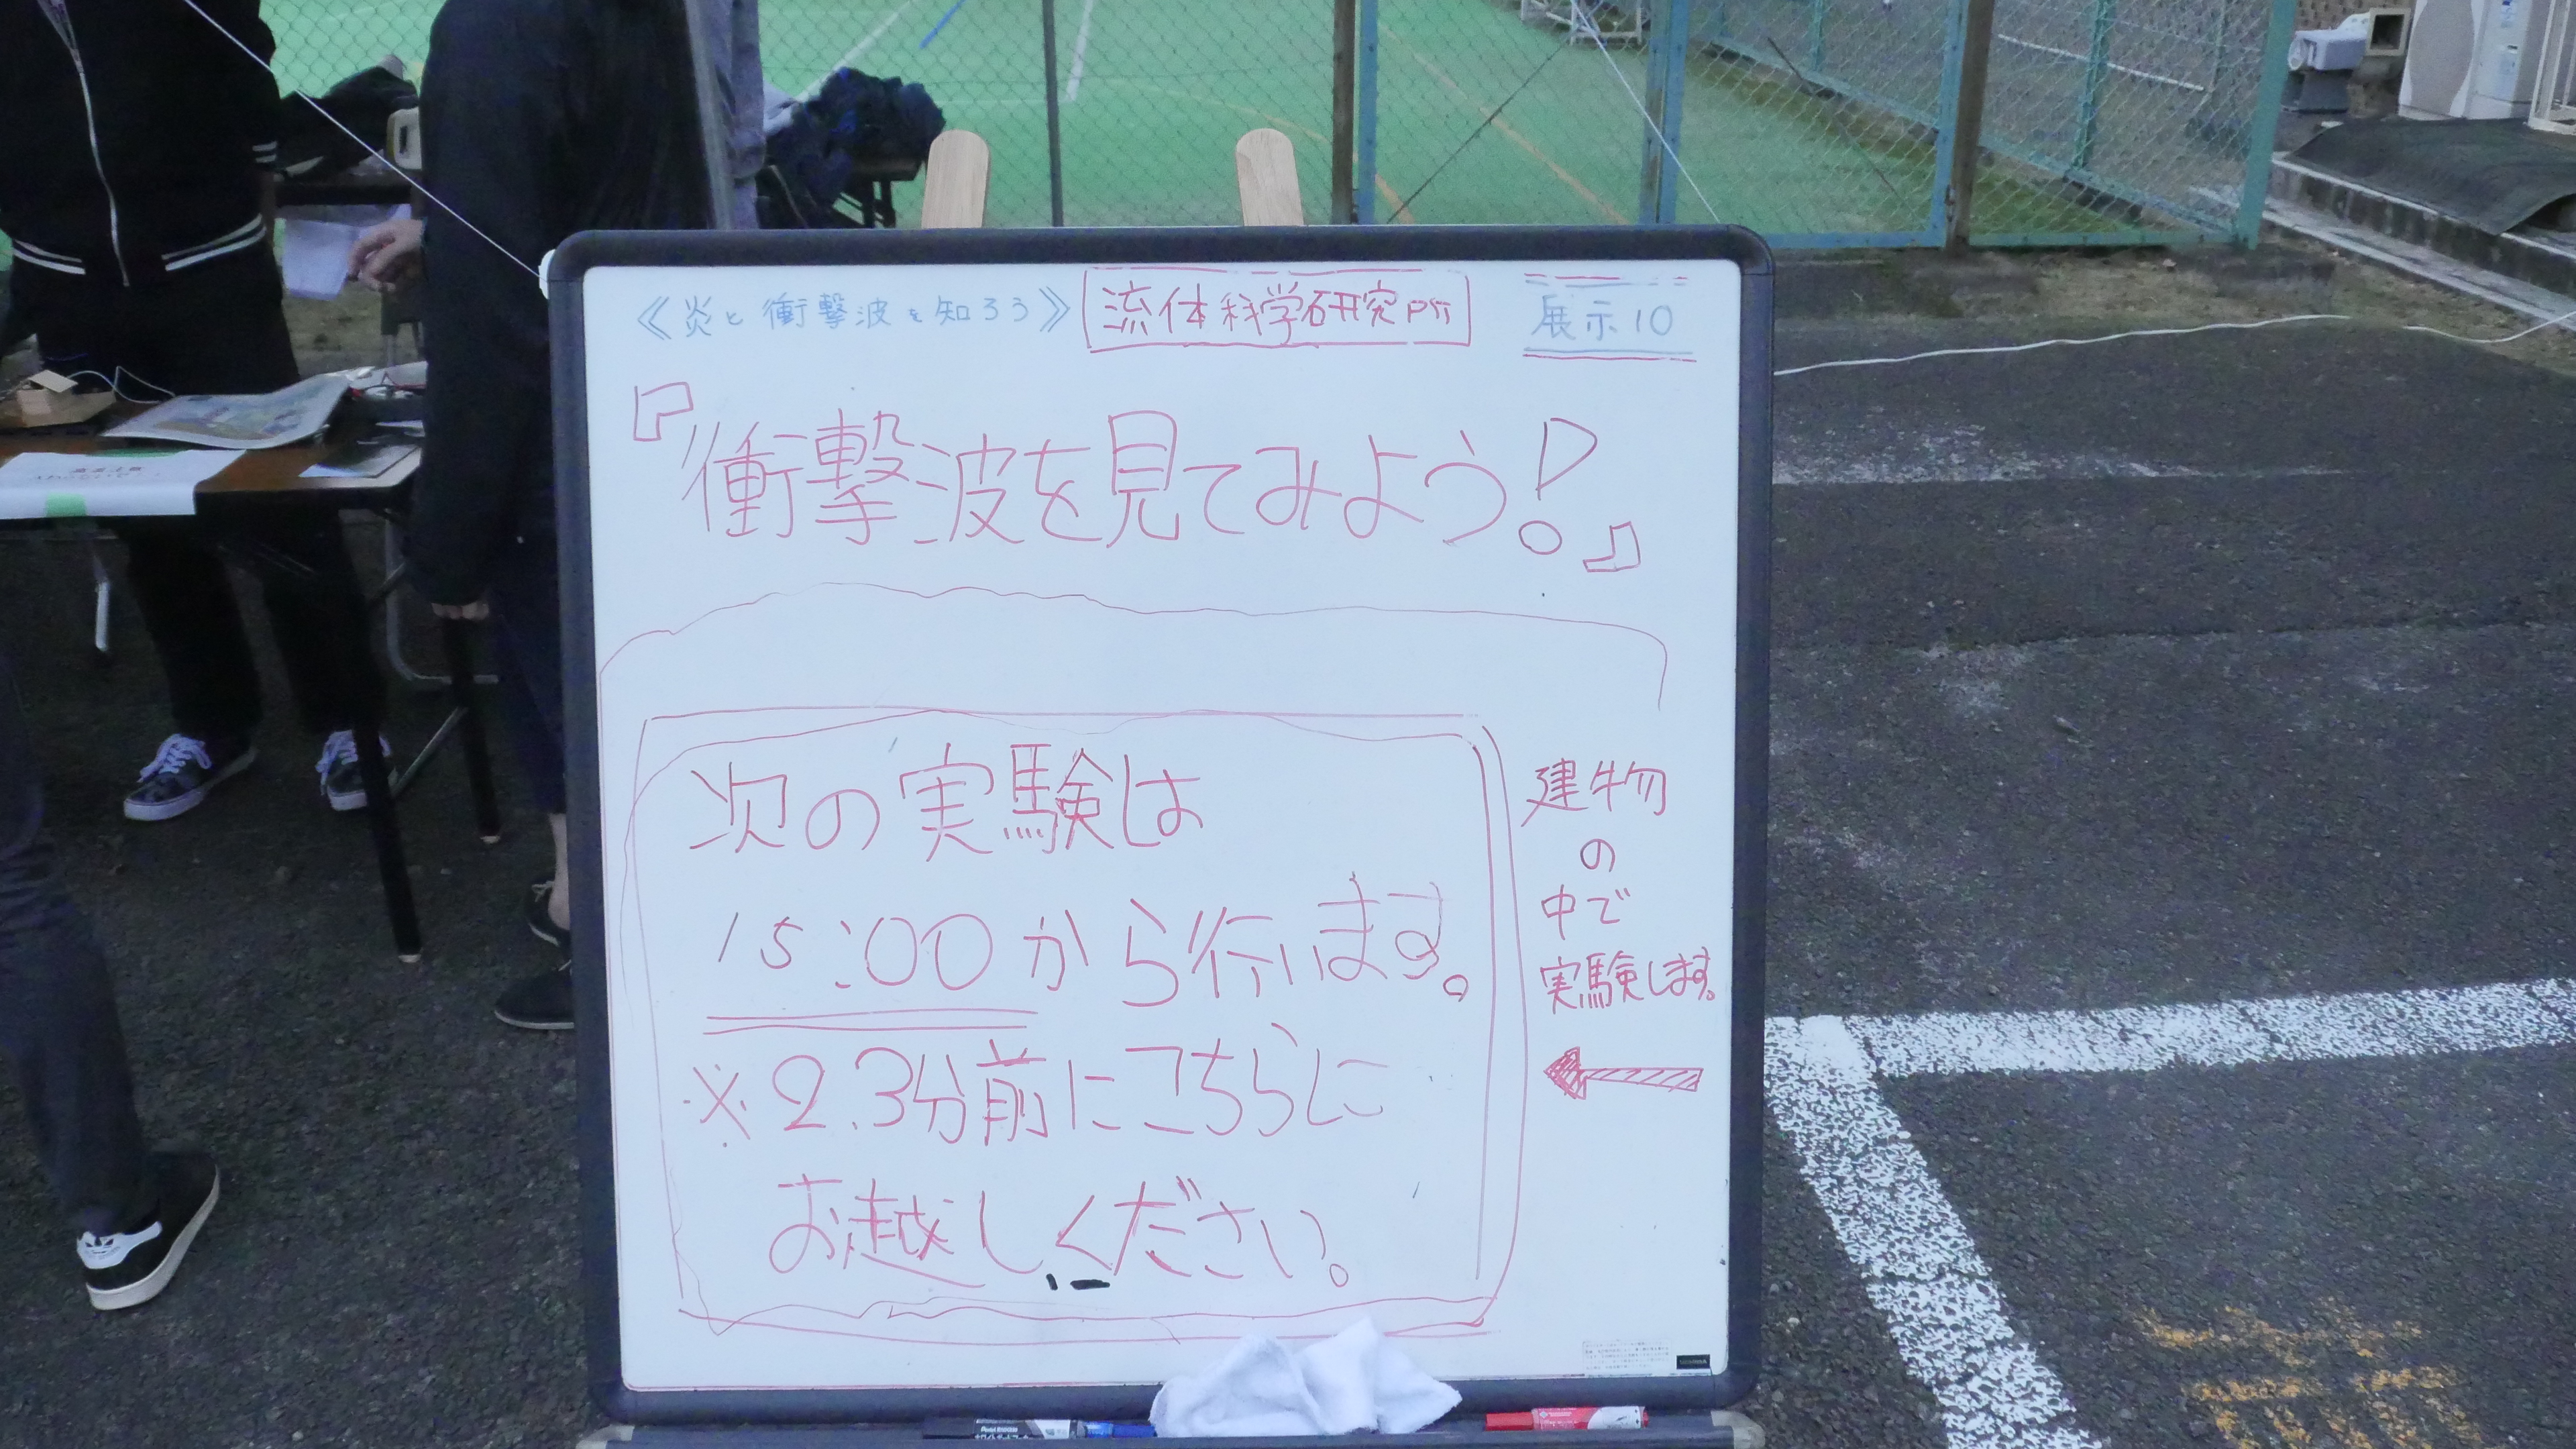 《炎と衝撃波を知ろう》 流体科学研究所 展示10
『衝撃波を見てみよう!』
次の実験は
15:00から行います。
※2.3分前にこちらに
お越しください。
建物
の
中で
実験します。